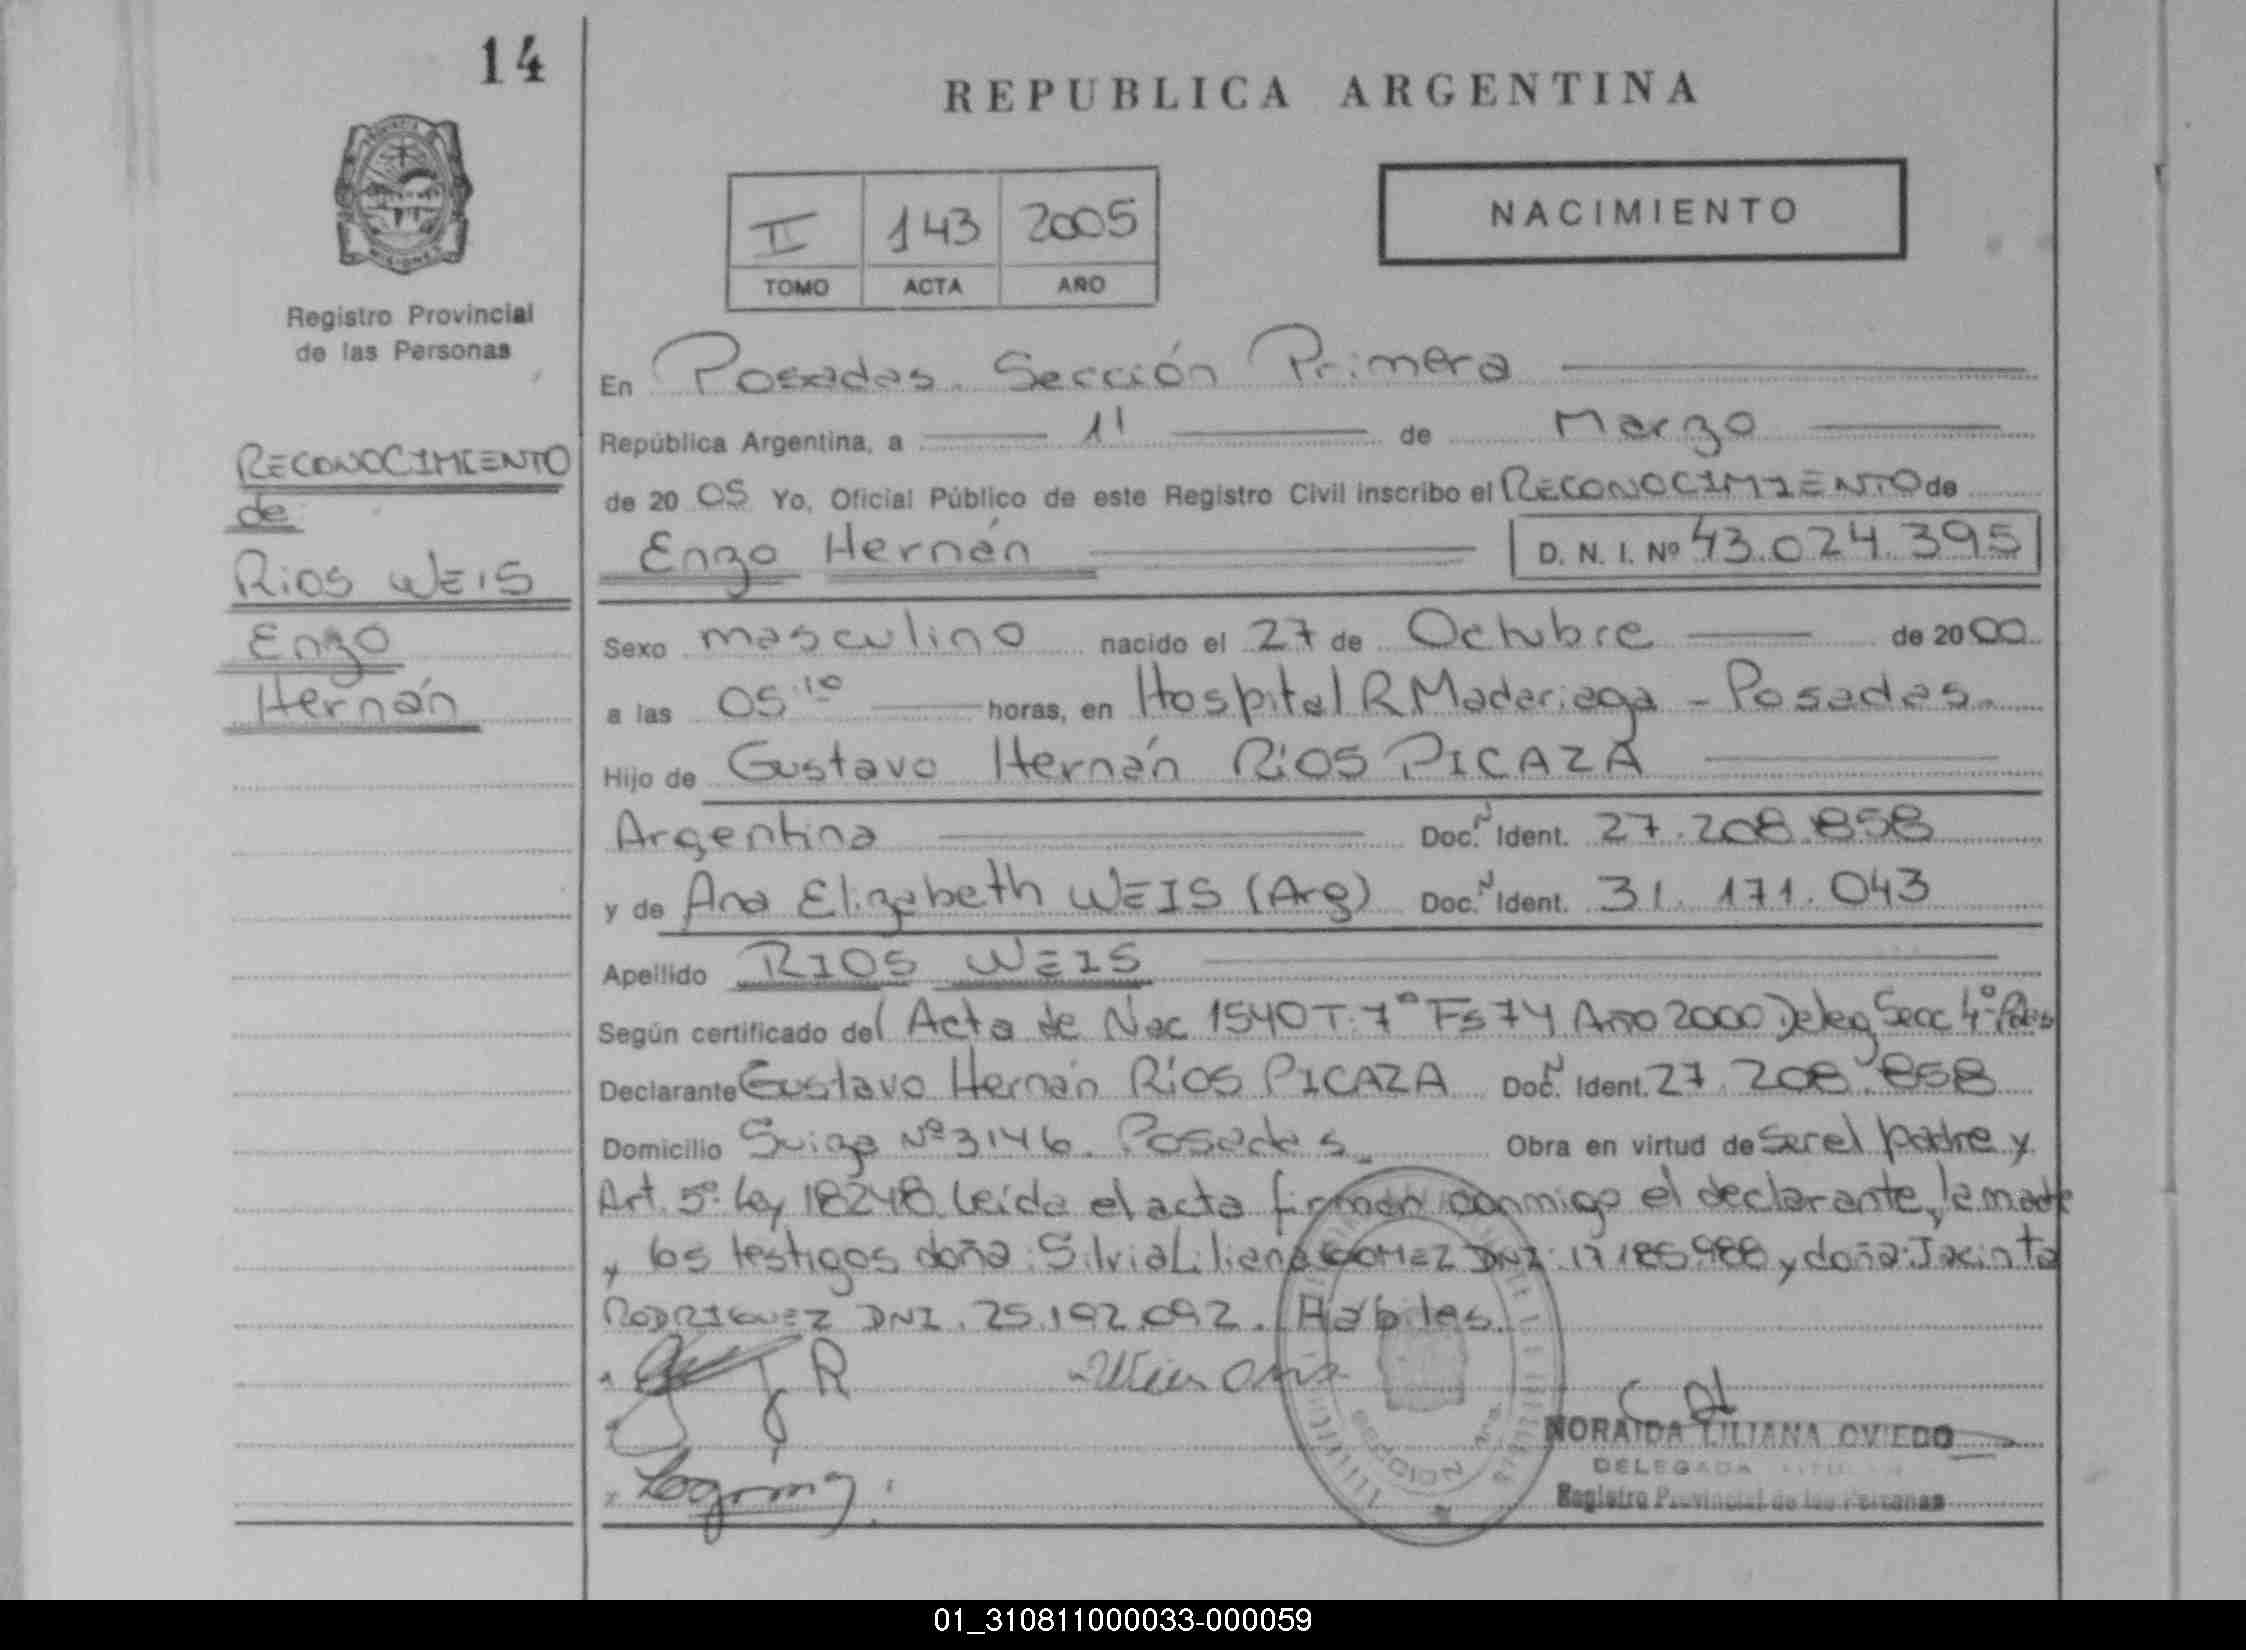 14
REPUBLICA ARGENTINA
PROVINCIA DE
MISIONES
Registro Provincial
de las Personas
II 143 2005
TOMO ACTA AÑO
NACIMIENTO
RECONOCIMIENTO
de
Rios WEIS
Enzo
Hernán
En Posadas. Sección Primera
República Argentina, a 11 de Marzo
de 20 05 Yo, Oficial Público de este Registro Civil inscribo el RECONOCIMIENTO de
Enzo Hernán D. N. I. Nº 43.024.395
Sexo masculino nacido el 27 de Octubre de 20 00
a las 05 10 horas, en Hospital R Madariaga - Posadas.
Hijo de Gustavo Hernán Ríos PICAZA
Argentina Doc. N Ident. 27.208.858
y de Ana Elizabeth WEIS (Arg) Doc. N Ident. 31.171.043
Apellido RIOS WEIS
Según certificado del Acta de Nac 1540 T. 7º Fs 74 Año 2000 Deleg Secc 4º
Declarante Gustavo Hernán Ríos PICAZA Doc. N Ident. 27.208.858
Domicilio Suiza Nº 3146. Posadas. Obra en virtud de ser el padre y
Art. 5º Ley 18248. Leída el acta firman conmigo el declarante, la madre
y los testigos doña: Silvia Liliana GOMEZ DNI: 17.185.988 y doña: Jacinta
RODRIGUEZ DNI. 25.192.092. Hábiles.
NORAIDA LILIANA OVIEDO
DELEGADA TITULAR
Registro Provincial de las Personas
01_310811000033-000059